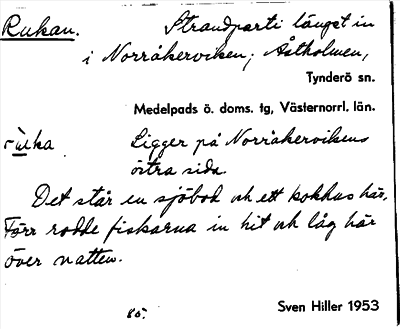 Rukan. Strandparti längst in
i Norråkerviken, Åstholmen,
Tynderö sn.
Medelpads ö. doms. tg, Västernorrl. län.
Ligger på Norråkervikens
östra sida.
Det står en sjöbod och ett kokhus här,
Förr rodde fiskarna in hit och låg här
över natten.
80.
Sven Hiller 1953